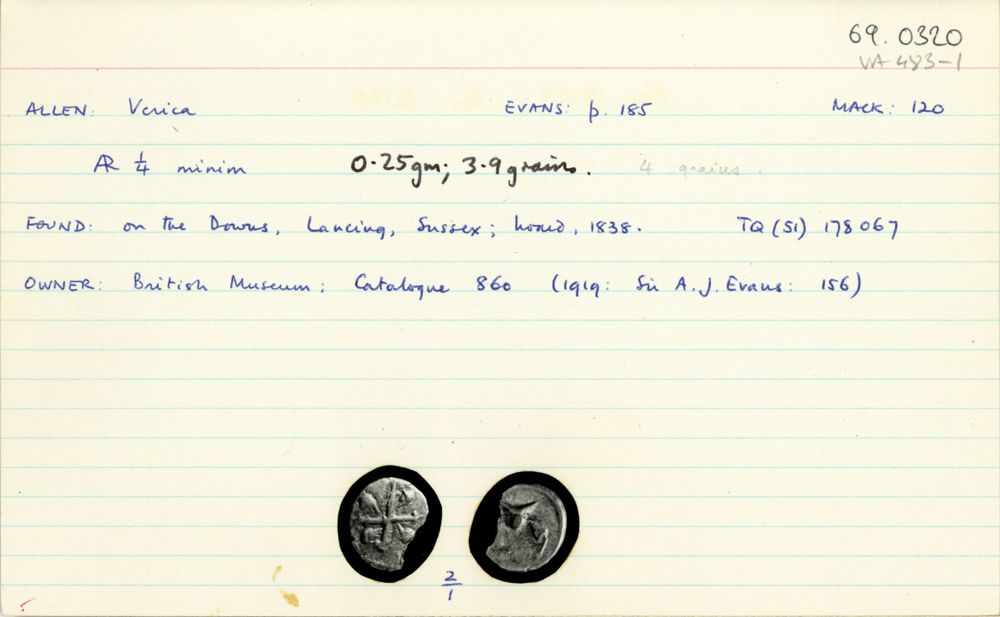 69. 0320
VA 483-1
ALLEN: Verica EVANS: p. 185 MACK: 120
AR ¼ minim 0.25gm; 3.9 grains. 4 grains.
FOUND: on the Downs, Lancing, Sussex; hoard, 1838. TQ (51) 178067
OWNER: British Museum; Catalogue 860 (1919: Sir A.J. Evans: 156)
2/1